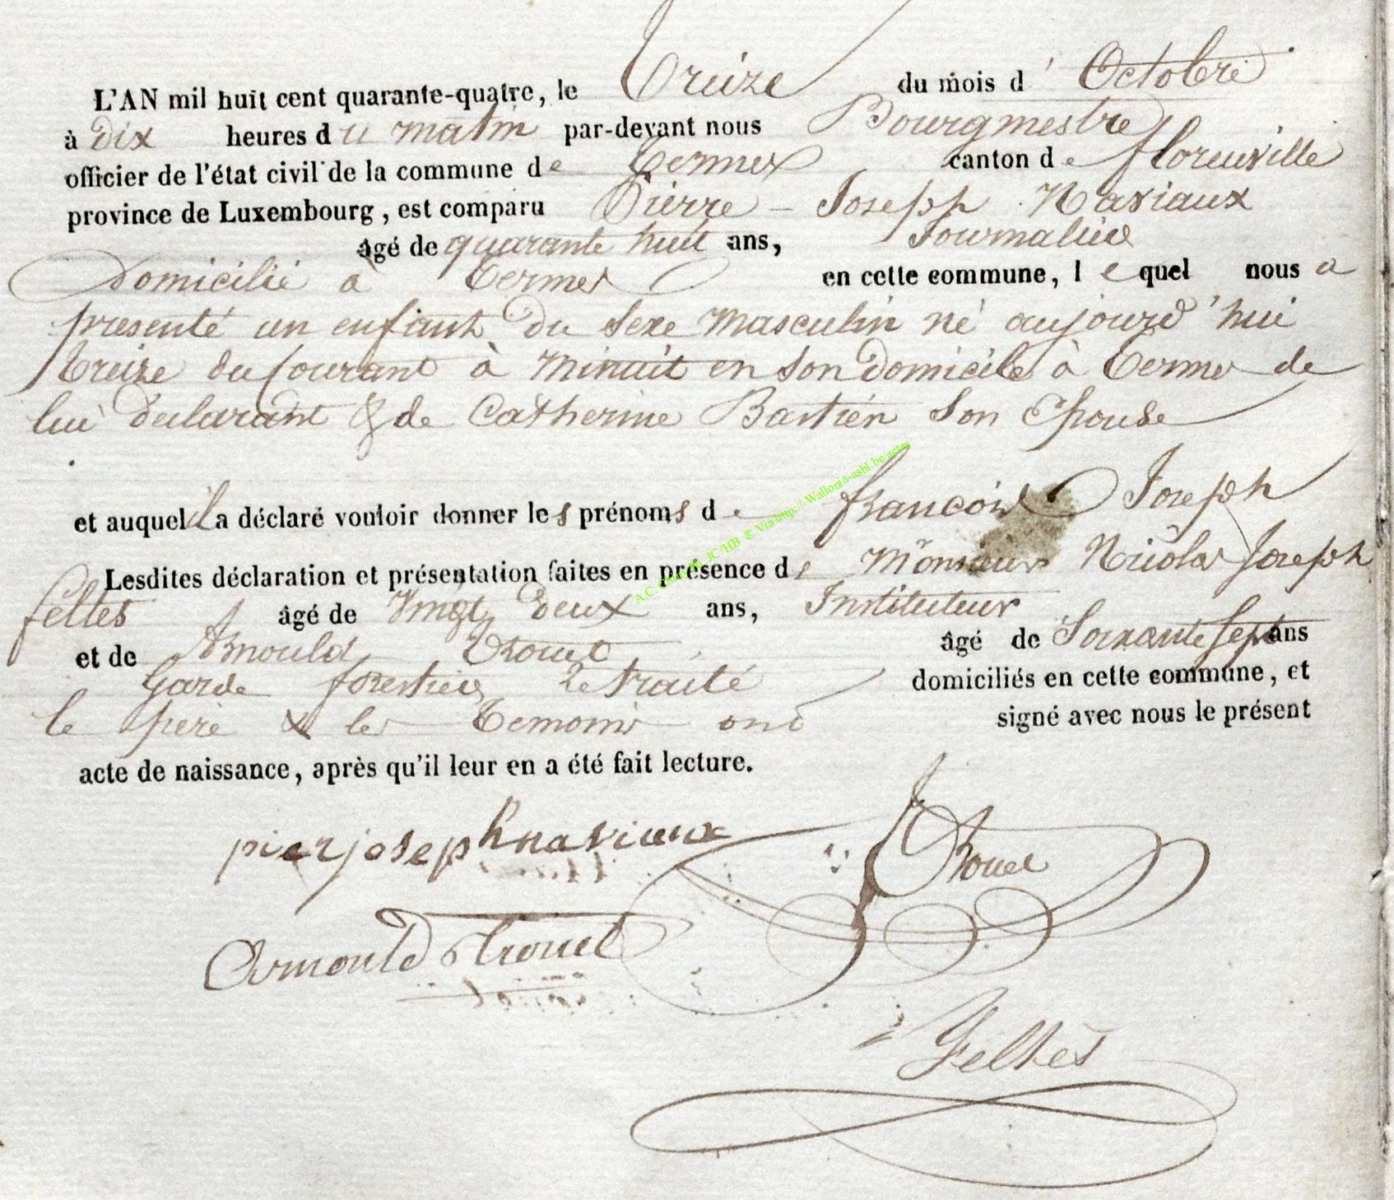 L'AN mil huit cent quarante-quatre, le Treize du mois d' Octobre
à dix heures du matin par-devant nous Bourgmestre
officier de l'état civil de la commune de Termes canton de florenville
province de Luxembourg, est comparu Pierre - Joseph Naviaux
âgé de quarante huit ans, Journalier
Domicilié à Termes en cette commune, lequel nous a
presenté un enfant du sexe masculin né aujourd'hui
treize du courant à minuit en son domicile à Termes de
lui déclarant & de Catherine Bastien son Epouse
et auquel il a déclaré vouloir donner les prénoms de françois Joseph
Lesdites déclaration et présentation faites en présence de Monsieur Nicolas Joseph
feltes âgé de vingt deux ans, Instituteur
et de Arnould Trouet âgé de Soixante sept ans
Garde forestier Retraité domiciliés en cette commune, et
le père & les Temoins ont signé avec nous le présent
acte de naissance, après qu'il leur en a été fait lecture.
pierjoseph naviaux
Trouet
Arnould Trouet
Feltes